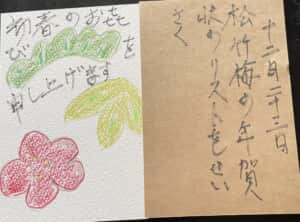 新春のお喜
びを
申し上げます
十二月二十三日
松竹梅の年賀
状のリストをせい
さく